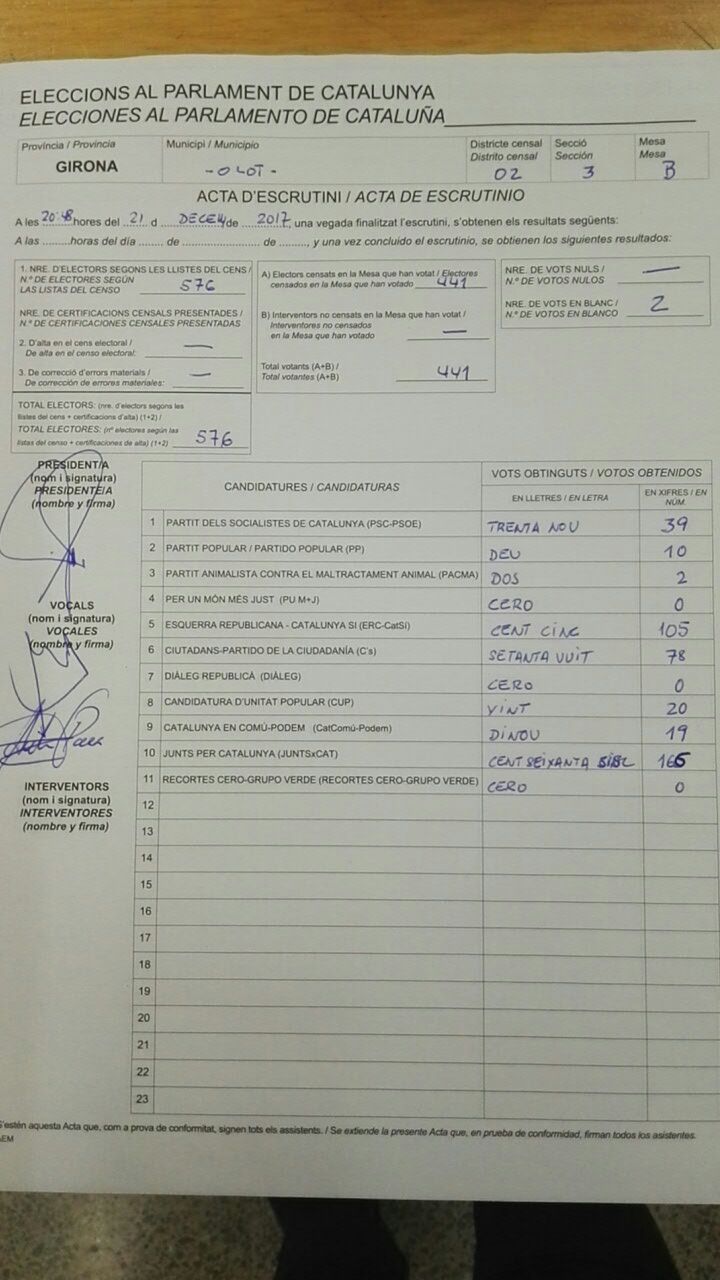 ELECCIONS AL PARLAMENT DE CATALUNYA
ELECCIONES AL PARLAMENTO DE CATALUÑA
Província / Provincia
GIRONA
Municipi / Municipio
- OLOT -
Districte censal
Distrito censal
02
Secció
Sección
3
Mesa
Mesa
B
ACTA D'ESCRUTINI / ACTA DE ESCRUTINIO
A les 20:48 hores del 21 d DECEM de 2017, una vegada finalitzat l'escrutini, s'obtenen els resultats següents:
A las ........horas del día ....... de .................... de ........, y una vez concluido el escrutinio, se obtienen los siguientes resultados:
1. NRE. D'ELECTORS SEGONS LES LLISTES DEL CENS /
N.º DE ELECTORES SEGÚN
LAS LISTAS DEL CENSO 576
NRE. DE CERTIFICACIONS CENSALS PRESENTADES /
N.º DE CERTIFICACIONES CENSALES PRESENTADAS
2. D'alta en el cens electoral /
De alta en el censo electoral: —
3. De correcció d'errors materials /
De corrección de errores materiales: —
TOTAL ELECTORS: (nre. d'electors segons les
llistes del cens + certificacions d'alta) (1+2) /
TOTAL ELECTORES: (nº electores según las
listas del censo + certificaciones de alta) (1+2) 576
A) Electors censats en la Mesa que han votat / Electores
censados en la Mesa que han votado 441
B) Interventors no censats en la Mesa que han votat /
Interventores no censados
en la Mesa que han votado —
Total votants (A+B) /
Total votantes (A+B) 441
NRE. DE VOTS NULS /
N.º DE VOTOS NULOS —
NRE. DE VOTS EN BLANC /
N.º DE VOTOS EN BLANCO 2
PRESIDENT/A
(nom i signatura)
PRESIDENTE/A
(nombre y firma)
VOCALS
(nom i signatura)
VOCALES
(nombre y firma)
INTERVENTORS
(nom i signatura)
INTERVENTORES
(nombre y firma)
CANDIDATURES / CANDIDATURAS
VOTS OBTINGUTS / VOTOS OBTENIDOS
EN LLETRES / EN LETRA
EN XIFRES / EN NÚM.
1 PARTIT DELS SOCIALISTES DE CATALUNYA (PSC-PSOE) TRENTA NOU 39
2 PARTIT POPULAR / PARTIDO POPULAR (PP) DEU 10
3 PARTIT ANIMALISTA CONTRA EL MALTRACTAMENT ANIMAL (PACMA) DOS 2
4 PER UN MÓN MÉS JUST (PU M+J) CERO 0
5 ESQUERRA REPUBLICANA - CATALUNYA SI (ERC-CatSí) CENT CINC 105
6 CIUTADANS-PARTIDO DE LA CIUDADANÍA (C's) SETANTA VUIT 78
7 DIÀLEG REPUBLICÀ (DIÀLEG) CERO 0
8 CANDIDATURA D'UNITAT POPULAR (CUP) VINT 20
9 CATALUNYA EN COMÚ-PODEM (CatComú-Podem) DINOU 19
10 JUNTS PER CATALUNYA (JUNTSxCAT) CENT SEIXANTA
11 RECORTES CERO-GRUPO VERDE (RECORTES CERO-GRUPO VERDE) CERO 0
12
13
14
15
16
17
18
19
20
21
22
23
S'estén aquesta Acta que, com a prova de conformitat, signen tots els assistents. / Se extiende la presente Acta que, en prueba de conformidad, firman todos los asistentes.